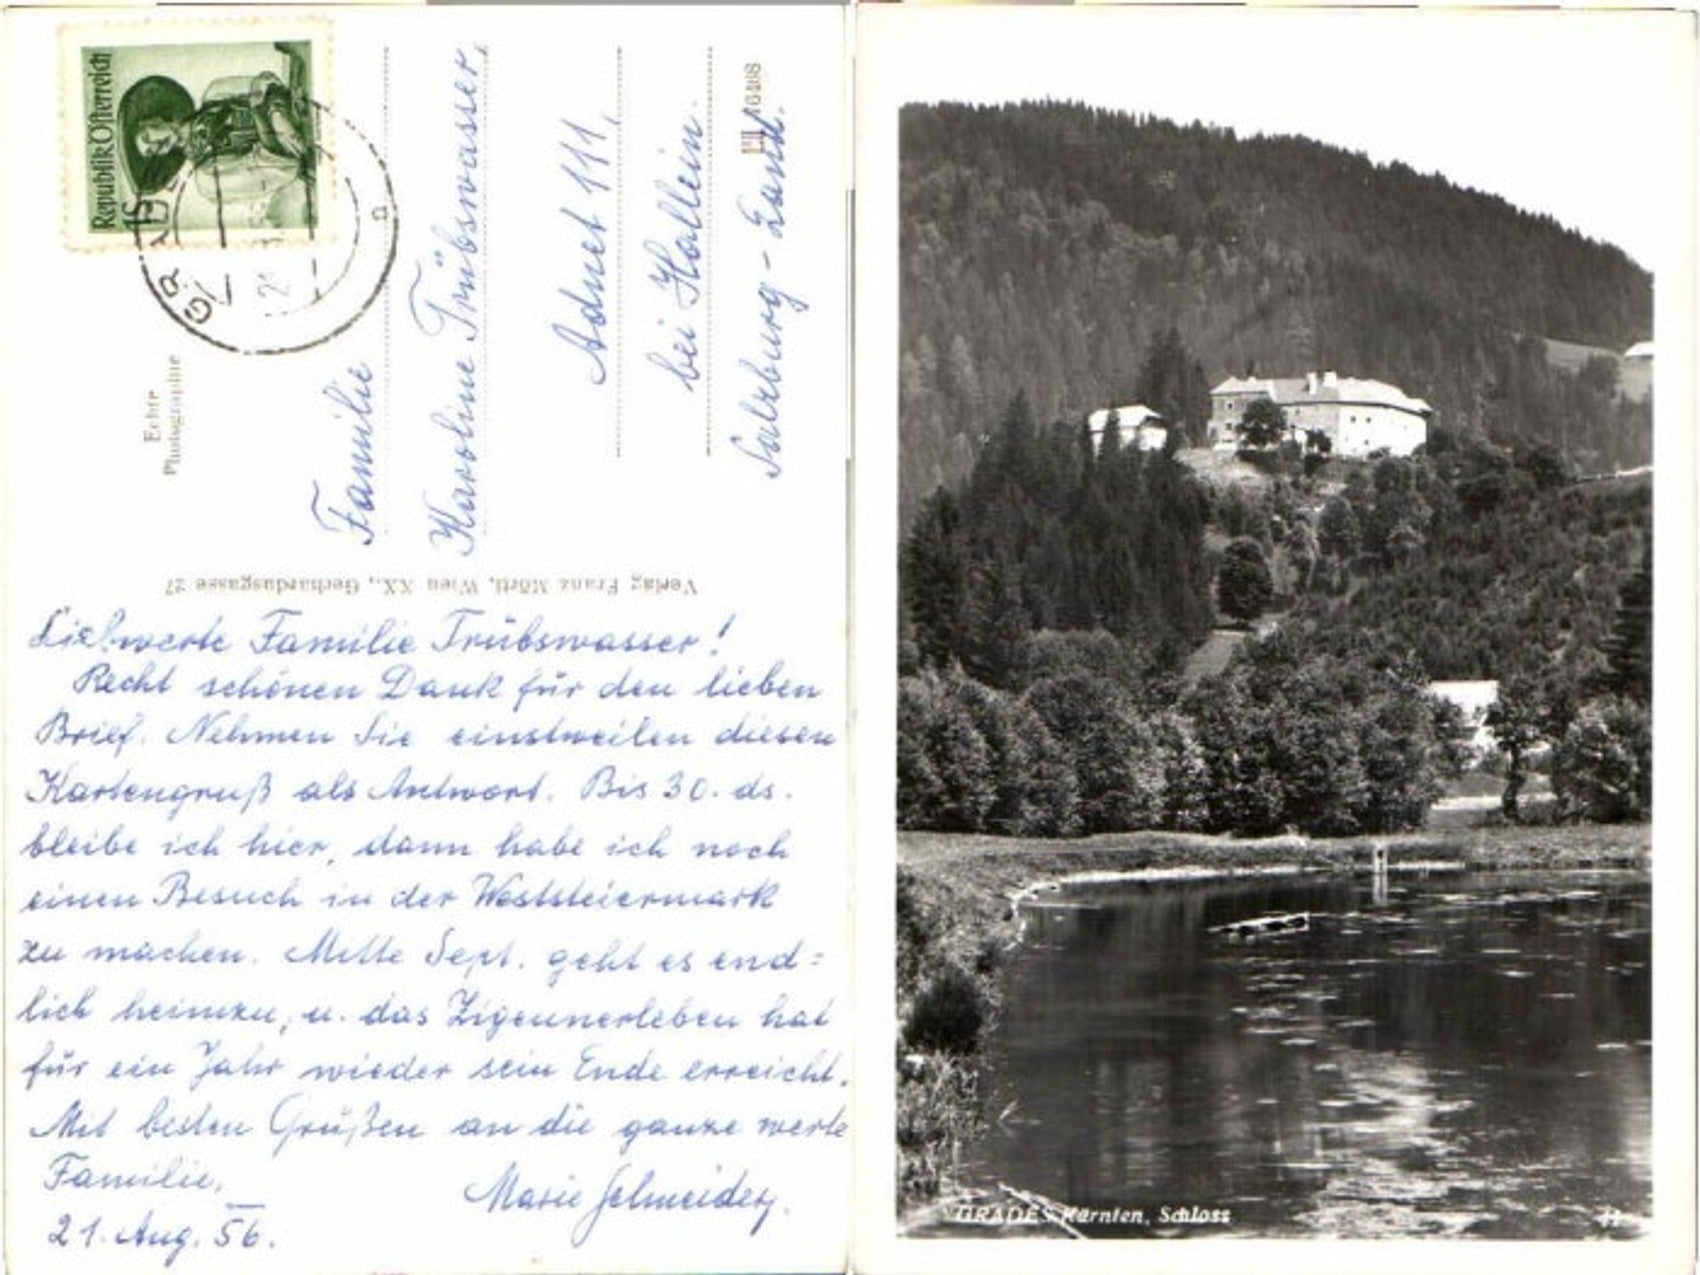 Republik Österreich
GRADES
Echte
Photographie
Familie
Karoline Trübswasser,
Adnet 111,
bei Hallein.
Salzburg-Land.
Verlag Franz Mörtl, Wien XX., Gerhardusgasse 27
Liebwerte Familie Trübswasser!
Recht schönen Dank für den lieben
Brief. Nehmen Sie einstweilen diesen
Kartengruß als Antwort. Bis 30. ds.
bleibe ich hier, dann habe ich noch
einen Besuch in der Weststeiermark
zu machen. Mitte Sept. geht es end=
lich heimzu, u. das Zigeunerleben hat
für ein Jahr wieder sein Ende erreicht.
Mit besten Grüßen an die ganze werte
Familie,
Marie Schneider.
21. Aug. 56.
GRADES Kärnten, Schloss